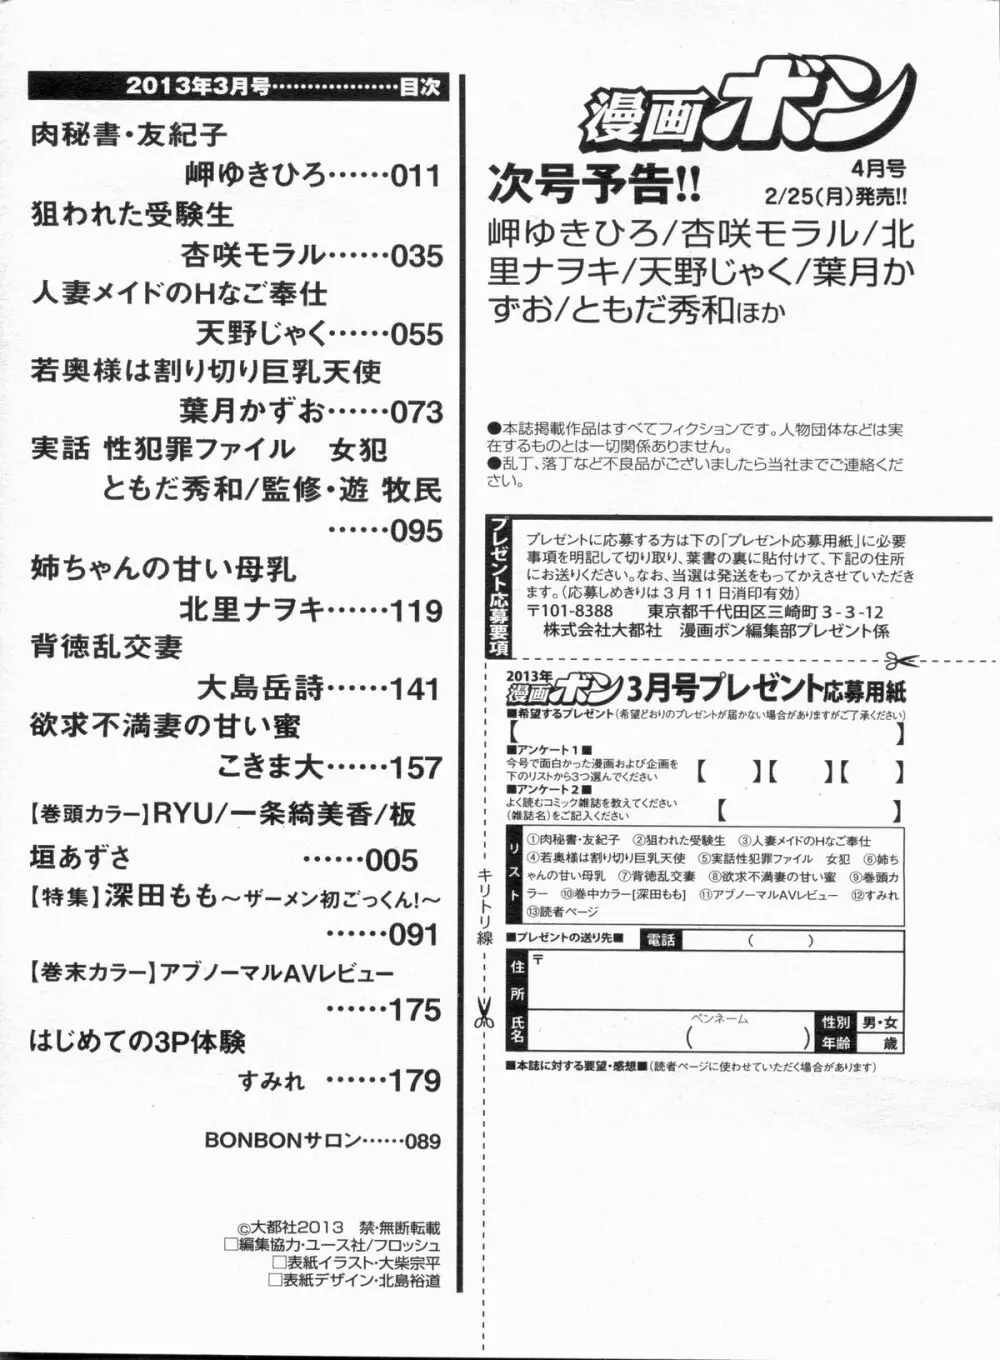 2013年3月号………………目次
肉秘書・友紀子
岬ゆきひろ……011
狙われた受験生
杏咲モラル……035
人妻メイドのHなご奉仕
天野じゃく……055
若奥様は割り切り巨乳天使
葉月かずお……073
実話 性犯罪ファイル　女犯
ともだ秀和/監修・遊 牧民
……095
姉ちゃんの甘い母乳
北里ナヲキ……119
背徳乱交妻
大島岳詩……141
欲求不満妻の甘い蜜
こきま大……157
【巻頭カラー】RYU/一条綺美香/板
垣あずさ　……005
【特集】深田もも〜ザーメン初ごっくん!〜
……091
【巻末カラー】アブノーマルAVレビュー
……175
はじめての3P体験
すみれ ……179
BONBONサロン……089
©大都社2013　禁・無断転載
□編集協力・ユース社/フロッシュ
□表紙イラスト・大柴宗平
□表紙デザイン・北島裕道
漫画ボン
次号予告!!
4月号
2/25(月)発売!!
岬ゆきひろ/杏咲モラル/北
里ナヲキ/天野じゃく/葉月か
ずお/ともだ秀和ほか
●本誌掲載作品はすべてフィクションです。人物団体などは実
在するものとは一切関係ありません。
●乱丁、落丁など不良品がございましたら当社までご連絡くだ
さい。
プレゼント応募要項
プレゼントに応募する方は下の「プレゼント応募用紙」に必要
事項を明記して切り取り、葉書の裏に貼付けて、下記の住所
にお送りください。なお、当選は発送をもってかえさせていただき
ます。(応募しめきりは3月11日消印有効)
〒101-8388　東京都千代田区三崎町3-3-12
株式会社大都社　漫画ボン編集部プレゼント係
キリトリ線
2013年
漫画ボン3月号プレゼント応募用紙
■希望するプレゼント(希望どおりのプレゼントが届かない場合がありますがご了承ください)
【　】
■アンケート1■
今号で面白かった漫画および企画を
下のリストから3つ選んでください
【　】【　】【　】
■アンケート2■
よく読むコミック雑誌を教えてください
(雑誌名)をご記入ください
【　】
リスト
①肉秘書・友紀子　②狙われた受験生　③人妻メイドのHなご奉仕
④若奥様は割り切り巨乳天使　⑤実話性犯罪ファイル　女犯　⑥姉ち
ゃんの甘い母乳　⑦背徳乱交妻　⑧欲求不満妻の甘い蜜　⑨巻頭カ
ラー　⑩巻中カラー[深田もも]　⑪アブノーマルAVレビュー　⑫すみれ
⑬読者ページ
■プレゼントの送り先■　電話　(　)
住所
〒
氏名
ペンネーム
(　)
性別　男・女
年齢　歳
■本誌に対する要望・感想■(読者ページに使わせていただく場合があります)